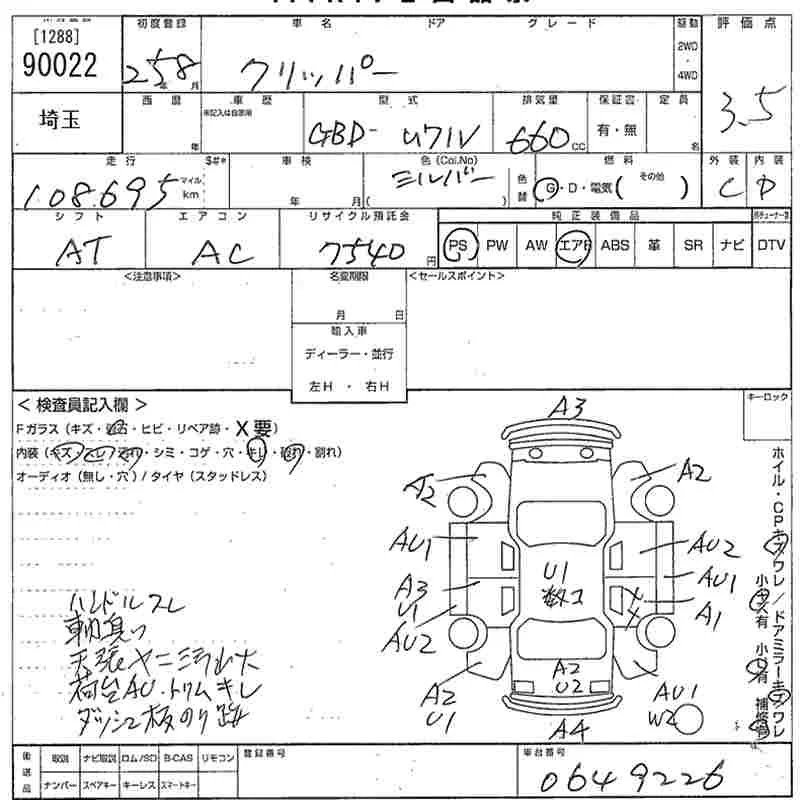 [1288] 初度登録 車名 ドア グレード 駆動 評価点
90022 258 年 月 クリッパー 2WD・4WD 3.5
埼玉 西暦 年 車歴 型式 排気量 保証書 定員
未記入は自家用 GBD- U71V 660 CC 有・無 名
走行 $#* 車検 色 (Col.No) 燃料 外装 内装
108.695 マイル km 年 月 シルバー ( ) 色替 G・D・電気 ( その他 ) C D
シフト エアコン リサイクル預託金 純正装備品
AT AC 7540 円 PS PW AW エアB ABS 革 SR ナビ DTV
<注意事項> 名変期限 <セールスポイント>
月 日
輸入車
ディーラー・並行
左H ・ 右H
< 検査員記入欄 > キーロック
Fガラス (キズ・飛石・ヒビ・リペア跡・X要)
内装 (キズ・スレ・汚れ・シミ・コゲ・穴・キレ・破れ・割れ)
オーディオ (無し・穴) / タイヤ (スタッドレス)
A3
A2 A2
AU1 AU2
A3 U1 AU1
U1 数コ A1
AU2
A2 A2 AU1
U1 U2 W2
A4
ハンドルスレ
天張ヤニ
荷台AU.トリムキレ
ダッシュ板のり跡
ホイル・CPキズワレ/ドアミラーキズワレ
後送品 取説 ナビ取説 ロム/SD B-CAS リモコン 登録番号 車台番号
ナンバー スペアキー キーレス スマートキー 0649226